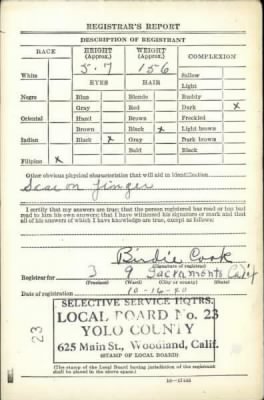 REGISTRAR'S REPORT
DESCRIPTION OF REGISTRANT
RACE HEIGHT (Approx.) WEIGHT (Approx.) COMPLEXION
5.7 156
White Sallow
EYES HAIR Light
Negro Blue Blonde Ruddy
Gray Red Dark x
Oriental Hazel Brown Freckled
Brown Black x Light brown
Indian Black x Gray Dark brown
Bald Black
Filipino x
Other obvious physical characteristics that will aid in identification
Scar on finger
I certify that my answers are true; that the person registered has read or has had
read to him his own answers; that I have witnessed his signature or mark and that
all of his answers of which I have knowledge are true, except as follows:
Birdie Cook
(Signature of registrar)
Registrar for 3 9 Sacramento Calif
(Precinct) (Ward) (City or county) (State)
Date of registration 10-16-40
SELECTIVE SERVICE HQTRS.
LOCAL BOARD No. 23
YOLO COUNTY
625 Main St., Woodland, Calif.
(STAMP OF LOCAL BOARD)
23
(The stamp of the Local Board having jurisdiction of the registrant
shall be placed in the above space.)